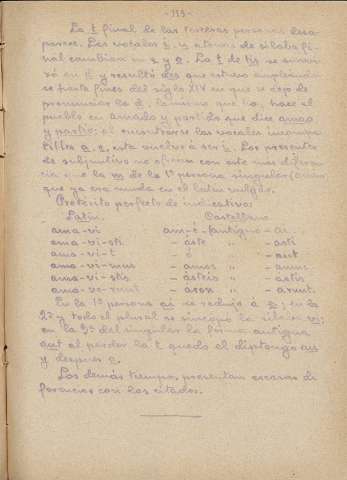 - 119 -
La t final de las terceras personas desa-
parece. Las vocales i, u átonas de sílaba fi-
nal cambian en e y o. La t de tis se suavi-
zó en d y resultó des que estuvo empleándo-
se hasta fines del siglo XIV en que se dejó de
pronunciar la d, lo mismo que hoy hace el
pueblo en amado y partido que dice amao
y partio; al encontrarse las vocales incompa-
tibles a, e, esta vuelve a ser i. Los presentes
de subjuntivo no ofrecen con este más diferen-
cia que la m de la 1ª persona singular (amem)
que ya era muda en el latín vulgar.
Pretérito perfecto de indicativo:
Latín. Castellano
ama-vi am-é - antiguo - ai
ama-vi-sti - aste „ - asti
ama-vi-t - ó „ - aut
ama-vi-mus - amos „ - amus
ama-vi-stis - asteis „ - astis
ama-ve-runt - aron „ - arunt.
En la 1ª persona ai se redujo a e; en la
2ª y todo el plural se sincopó la sílaba vi;
en la 3ª del singular la forma antigua
aut al perder la t quedó el diptongo au
y después o.
Los demás tiempos, presentan escasas di-
ferencias con los citados.